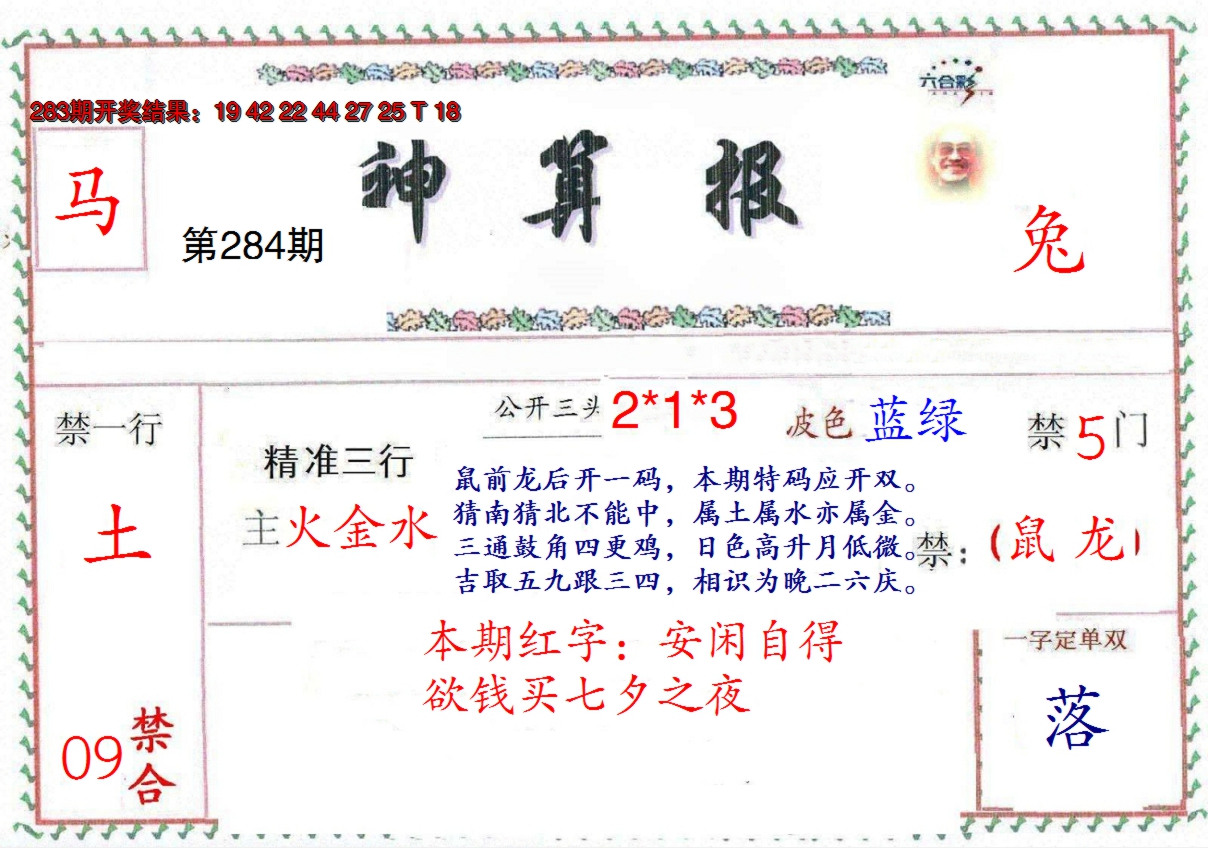 六合彩
283期开奖结果：19 42 22 44 27 25 T 18
神算报
马
第284期
兔
公开三头 2*1*3
波色 蓝绿
禁5门
禁一行
土
精准三行
主火金水
鼠前龙后开一码，本期特码应开双。
猜南猜北不能中，属土属水亦属金。
三通鼓角四更鸡，日色高升月低微。
吉取五九跟三四，相识为晚二六庆。
禁：（鼠 龙）
本期红字：安闲自得
欲钱买七夕之夜
一字定单双
落
09
禁合